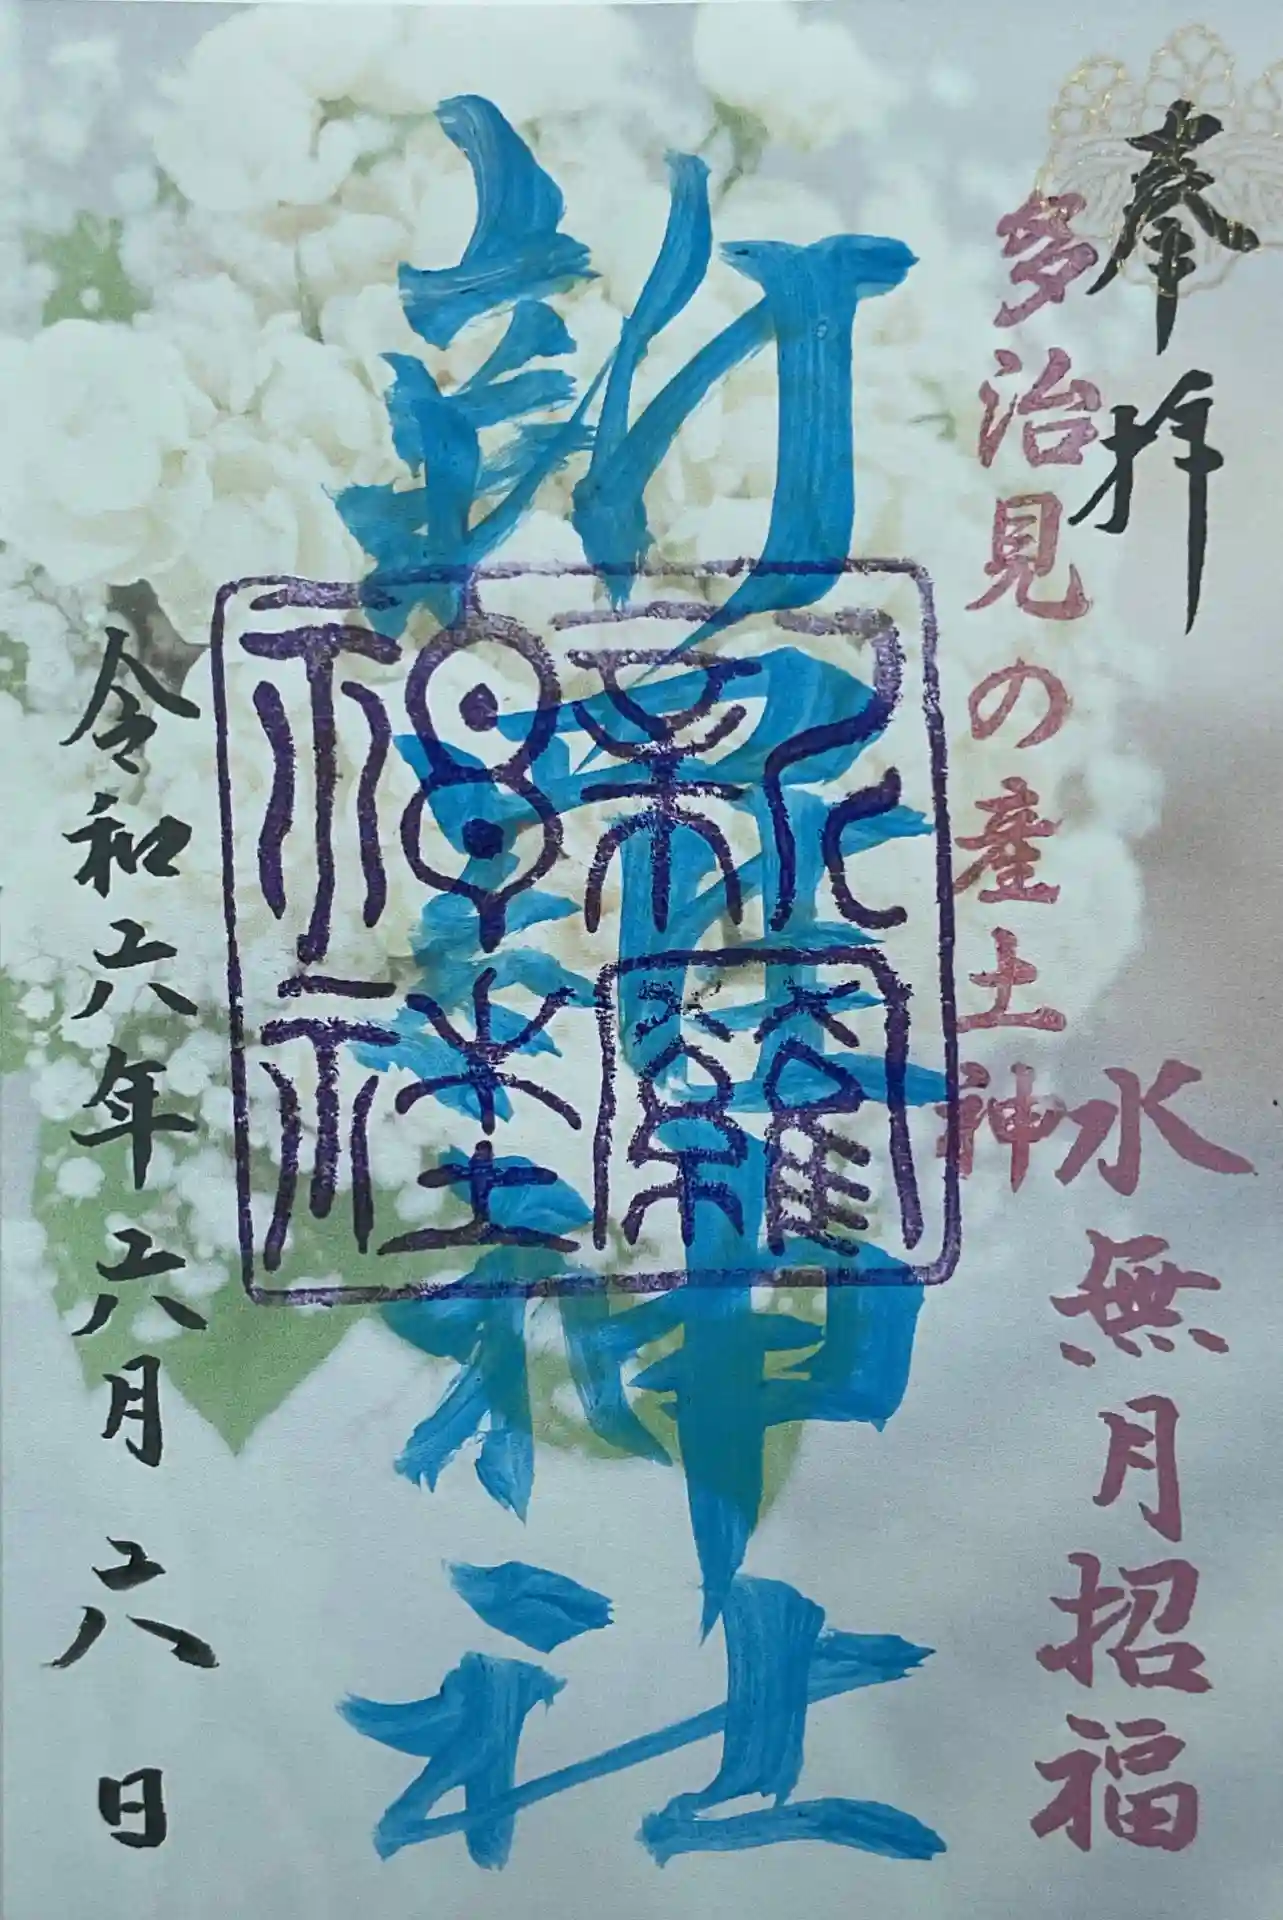 奉拝
水無月招福
多治見の産土神
新羅神社
令和六年六月六日